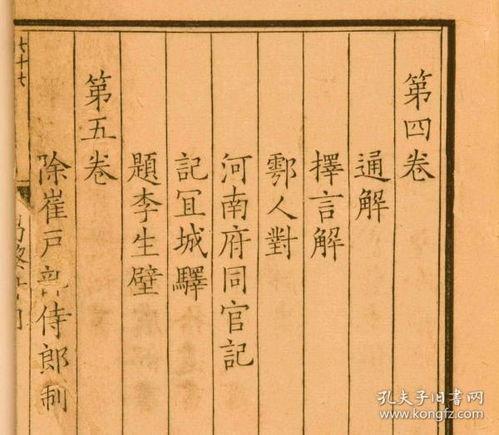 第四卷
通解
擇言解
鄠人對
河南府同官記
記冝城驛
題李生壁
第五卷
除崔戸部侍郎制
七十七
孔夫子旧书网
www.kongfz.com